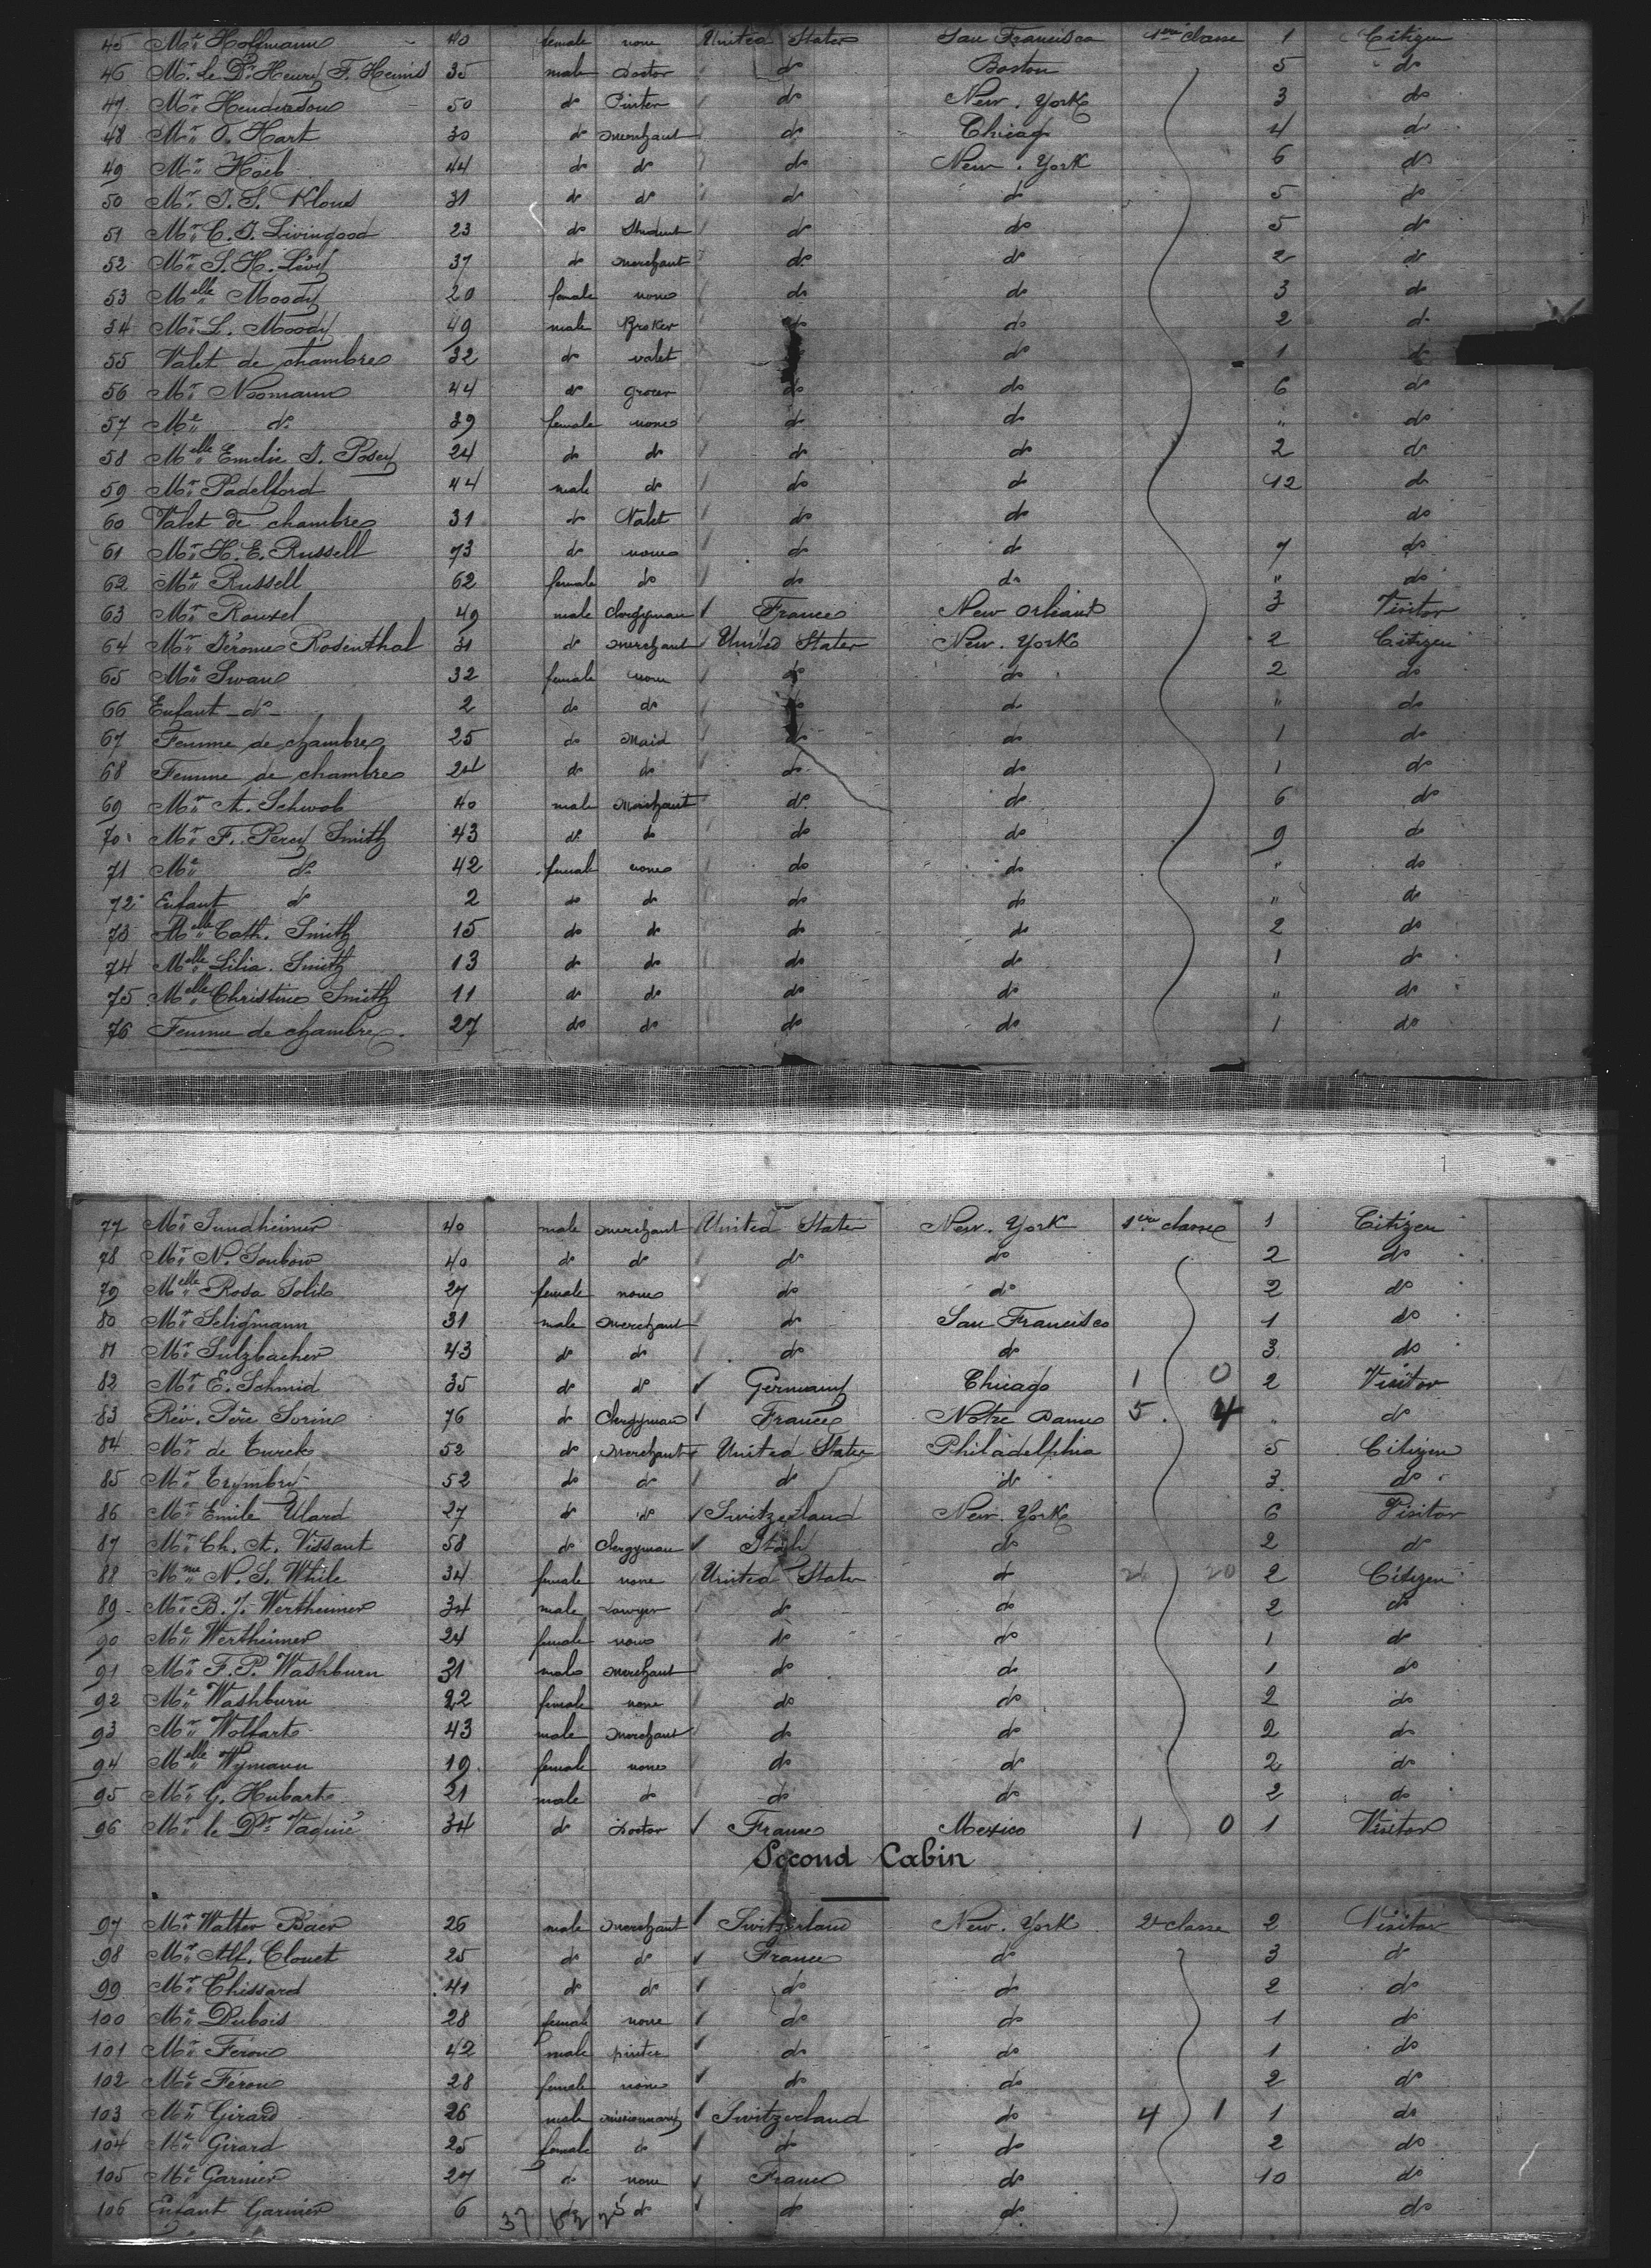 45 Mr Hoffmann 40 female none United States San Francisco 1ère classe 1 Citizen
46 Mr le Dr Henry F. 35 male Doctor do Boston 5 do
47 Mr Henderson 50 do do New. York 3 do
48 Mr O. Hart 30 do merchant do Chicago 4 do
49 Mr 44 do do do New. York 6 do
50 Mr 31 do do do do 5 do
51 Mr C. J. Livingood 23 do Student do do 5 do
52 Mr S. H. Lévy 37 do merchant do do 2 do
53 Melle Moody 20 female none do do 3 do
54 Mr L. Moody 49 male Broker do do 2 do
55 Valet de chambre 32 do valet do do 1 do
56 Mr 44 do grocer do do 6 do
57 Me do 39 female none do do " do
58 Melle Emelie J. Posey 24 do do do do 2 do
59 Mr Padelford 44 male do do do 12 do
60 Valet de chambre 31 do Valet do do do
61 Mr H. E. Russell 73 do none do do 7 do
62 Me Russell 62 female do do do " do
63 Mr Rouxel 49 male Clergyman France New Orleans 3 Visitor
64 Mr Jérome Rosenthal 31 do merchant United States New. York 2 Citizen
65 Me Swan 32 female none do do 2 do
66 Enfant do 2 do do do do " do
67 Femme de chambre 25 do Maid do do 1 do
68 Femme de chambre 24 do do do do 1 do
69 Mr A. Schwob 40 male merchant do do 6 do
70 Mr F. Percy Smith 43 do do do do 9 do
71 Me do 42 female none do do " do
72 Enfant do 2 do do do do " do
73 Melle Cath. Smith 15 do do do do 2 do
74 Melle Lilia. Smith 13 do do do do 1 do
75 Melle Christine Smith 11 do do do do " do
76 Femme de chambre 27 do do do do 1 do
77 Mr Sundheimer 40 male merchant United States New. York 1ère classe 1 Citizen
78 Mr N. 40 do do do do 2 do
79 Melle Rosa Solis 27 female none do do 2 do
80 Mr Seligmann 31 male merchant do San Francisco 1 do
81 Mr Sulzbacher 43 do do do do 3 do
82 Mr E. Schmid 35 do do Germany Chicago 1 0 2 Visitor
83 Rév. Père Sorin 76 do Clergyman France Notre Dame 5 4 " do
84 Mr de Turck 52 do merchant United States Philadelphia 5 Citizen
85 Mr 52 do do do do 3 do
86 Mr Emile Ulard 27 do do Switzerland New. York 6 Visitor
87 Mr Ch. A. Vissant 58 do Clergyman do 2 do
88 Mme N. S. While 34 female none United States do 20 2 Citizen
89 Mr B. J. Wertheimer 34 male Lawyer do do 2 do
90 Me Wertheimer 24 female none do do 1 do
91 Mr F. P. Washburn 31 male merchant do do 1 do
92 Me Washburn 22 female none do do 2 do
93 Mr 43 male merchant do do 2 do
94 Melle Wymann 19 female none do do 2 do
95 Mr G. Hubart 21 male do do do 2 do
96 Mr le Dr Vaquié 34 do Doctor France Mexico 1 0 1 Visitor
Second Cabin
97 Mr Walter Baer 26 male merchant Switzerland New. York 2e classe 2 Visitor
98 Mr Alf. Clouet 25 do do France do 3 do
99 Mr Chissard 41 do do do do 2 do
100 Me Dubois 28 female none do do 1 do
101 Mr Féron 42 male do do 1 do
102 Me Féron 28 female none do do 2 do
103 Mr Girard 26 male missionary Switzerland do 4 1 1 do
104 Me Girard 25 female do do do 2 do
105 Me Garnier 27 do none France do 10 do
106 Enfant Garnier 6 37 do do do do